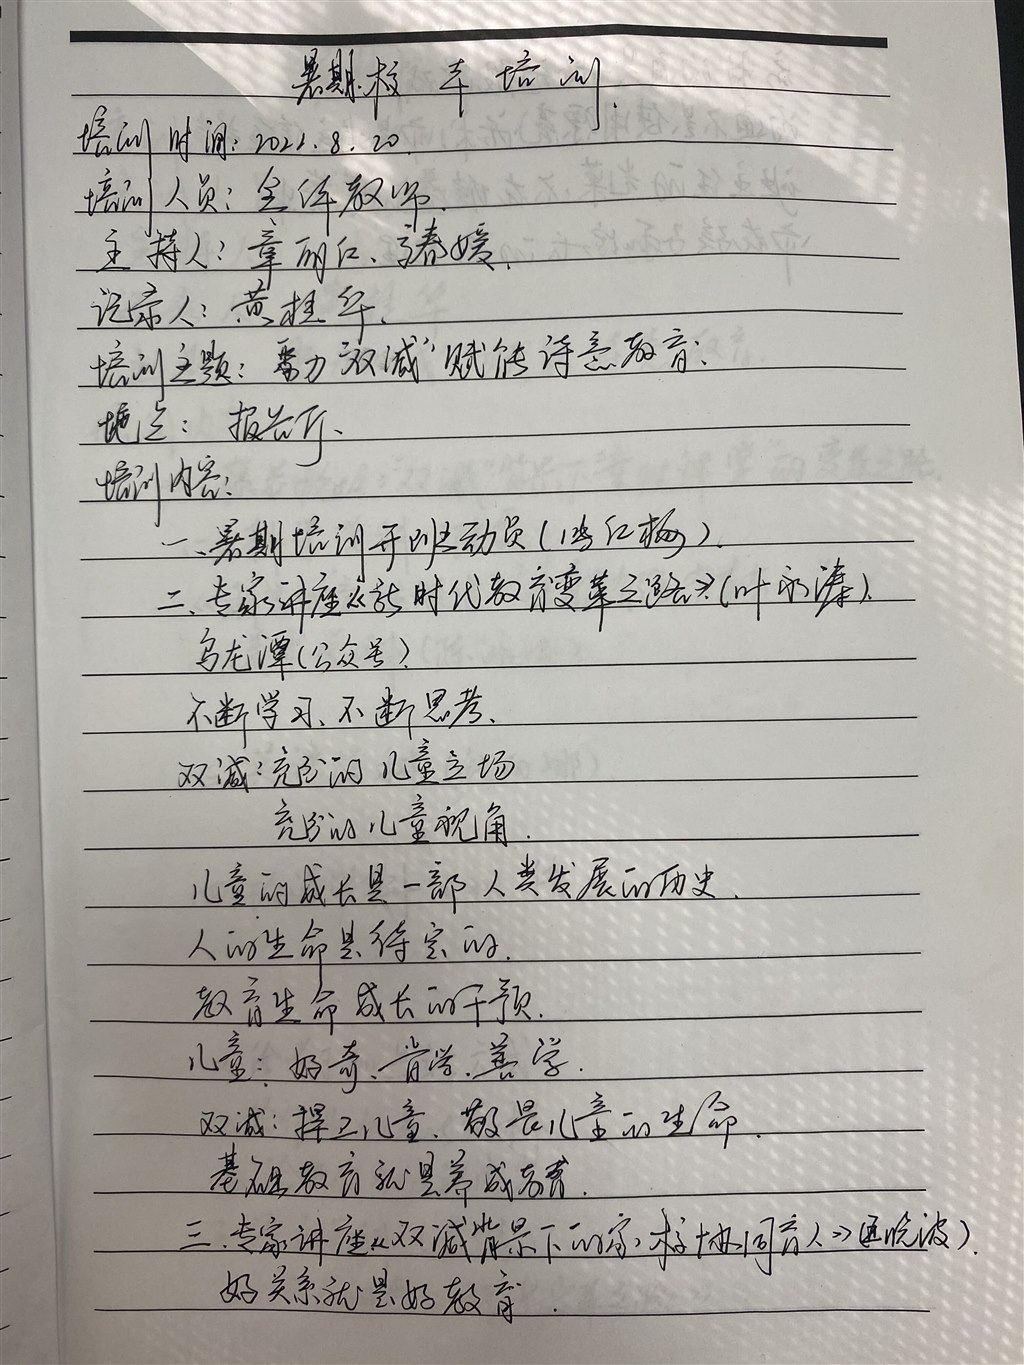 暑期校本培训
培训时间:2021.8.20.
培训人员:全体教师.
主持人:章丽仁、春媛.
记录人:黄桂华.
培训主题:聚力“双减”赋能诗意教育.
地点:报告厅.
培训内容:
一、暑期培训开班动员(红梅).
二、专家讲座《新时代教育变革之路》(叶).
乌龙潭(公众号)
不断学习、不断思考.
双减:充分的儿童立场
充分的儿童视角.
儿童的成长是一部人类发展的历史.
人的生命是待完的.
教育生命成长的干预.
儿童:好奇、肯学、善学.
双减:捍卫儿童、敬畏儿童的生命.
基础教育就是养成教育.
三、专家讲座《双减背景下的家校协同育人》波).
好关系就是好教育.